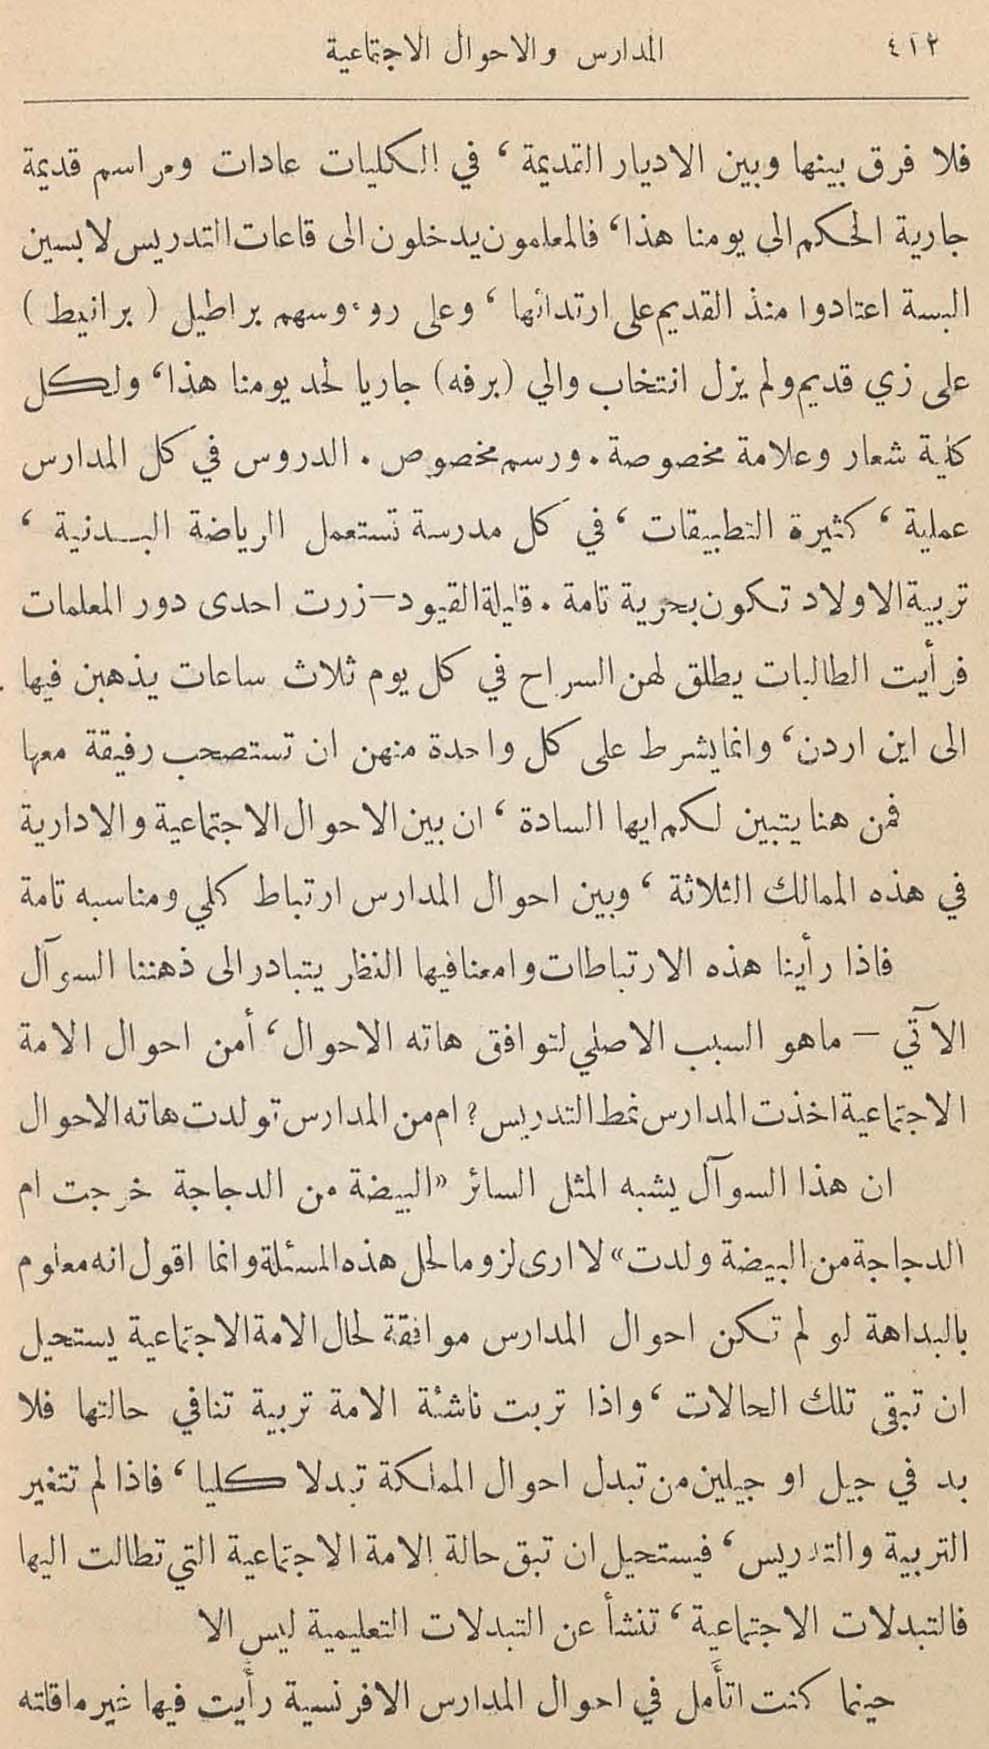 ٤١٢
المدارس والاحوال الاجتماعية
فلا فرق بينها وبين الاديار القديمة ، في الكليات عادات ومراسم قديمة
جارية الحكم الى يومنا هذا، فالمعلمون يدخلون الى قاعات التدريس لابسين
البسة اعتادوا منذ القديم على ارتدائها ، وعلى روءوسهم براطيل ( برانيط )
على زي قديم ولم يزل انتخاب والي (برفه) جاريا لحد يومنا هذا، ولكل
كلية شعار وعلامة مخصوصة . ورسم مخصوص . الدروس في كل المدارس
عملية ، كثيرة التطبيقات ، في كل مدرسة تستعمل الرياضة البدنية ،
تربية الاولاد تكون بحرية تامة . قليلة القيود — زرت احدى دور المعلمات
فرأيت الطالبات يطلق لهن السراح في كل يوم ثلاث ساعات يذهبن فيها
الى اين اردن، وانما يشرط على كل واحدة منهن ان تستصحب رفيقة معها
فمن هنا يتبين لكم ايها السادة ، ان بين الاحوال الاجتماعية والادارية
في هذه الممالك الثلاثة ، وبين احوال المدارس ارتباط كلي ومناسبه تامة
فاذا رأينا هذه الارتباطات وامعنا فيها النظر يتبادر الى ذهننا السوآل
الآتي — ماهو السبب الاصلي لتوافق هاته الاحوال، أمن احوال الامة
الاجتماعية اخذت المدارس نمط التدريس ؟ ام من المدارس تولدت هاته الاحوال
ان هذا السوآل يشبه المثل السائر «البيضة من الدجاجة خرجت ام
الدجاجة من البيضة ولدت» لا ارى لزوما لحل هذه المسئلة وانما اقول انه معلوم
بالبداهة لو لم تكن احوال المدارس موافقة لحال الامة الاجتماعية يستحيل
ان تبقى تلك الحالات ، واذا تربت ناشئة الامة تربية تنافي حالتها فلا
بد في جيل او جيلين من تبدل احوال المملكة تبدلا كليا ، فاذا لم تتغير
التربية والتدريس ، فيستحيل ان تبق حالة الامة الاجتماعية التي تطالت اليها
فالتبدلات الاجتماعية ، تنشأ عن التبدلات التعليمية ليس الا
حينما كنت اتأمل في احوال المدارس الافرنسية رأيت فيها غير ماقلته